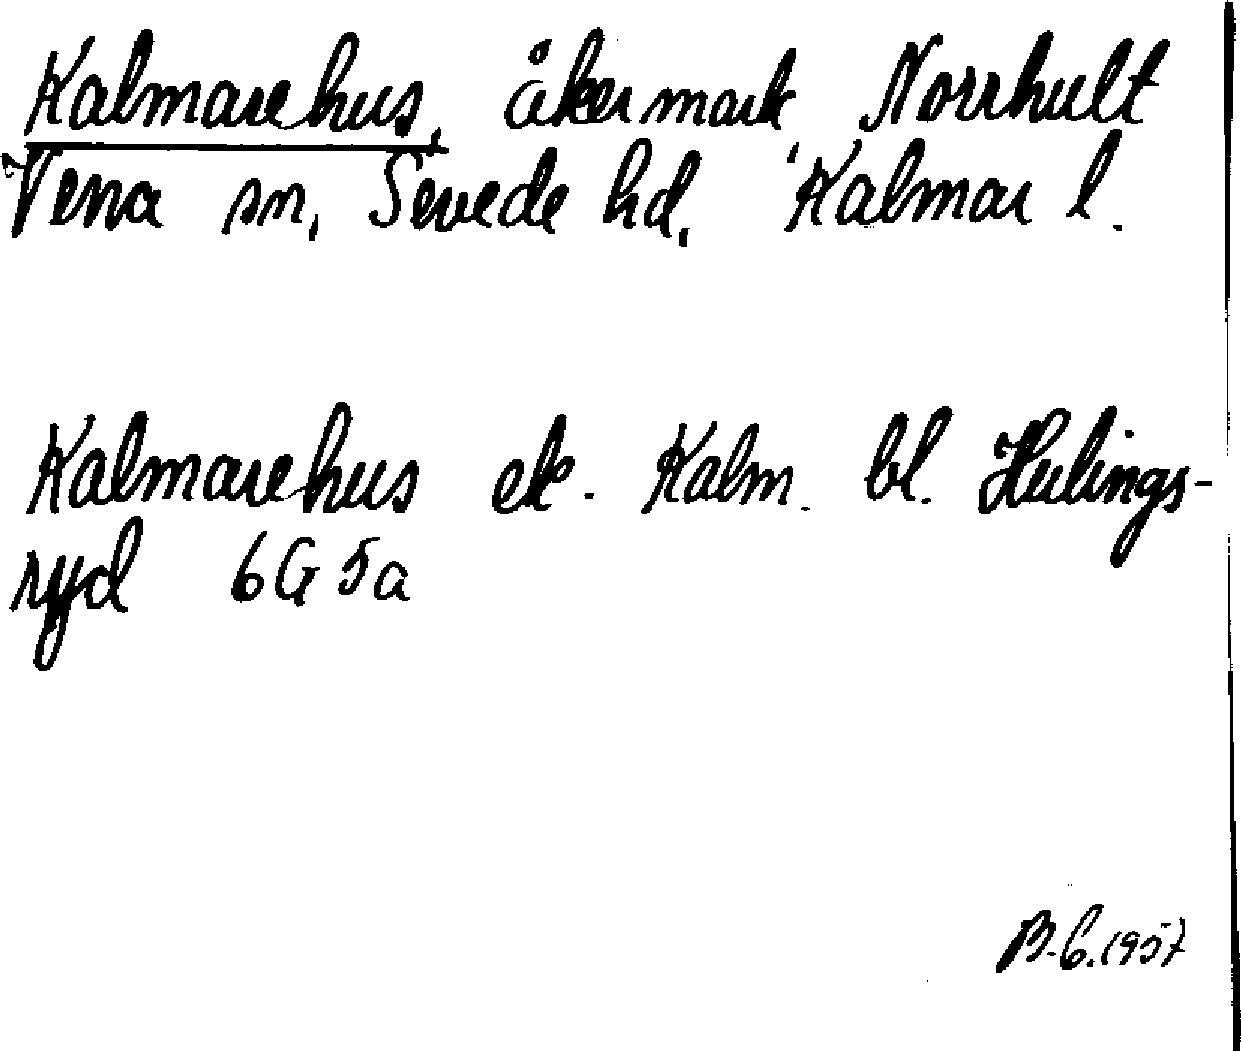 Kalmarehus, åkermark, Norrhult
Vena sn, Sevede hd, Kalmar l.
Kalmarehus ek. Kalm. bl. Hulings-
ryd 6G5a
B.C. 1957